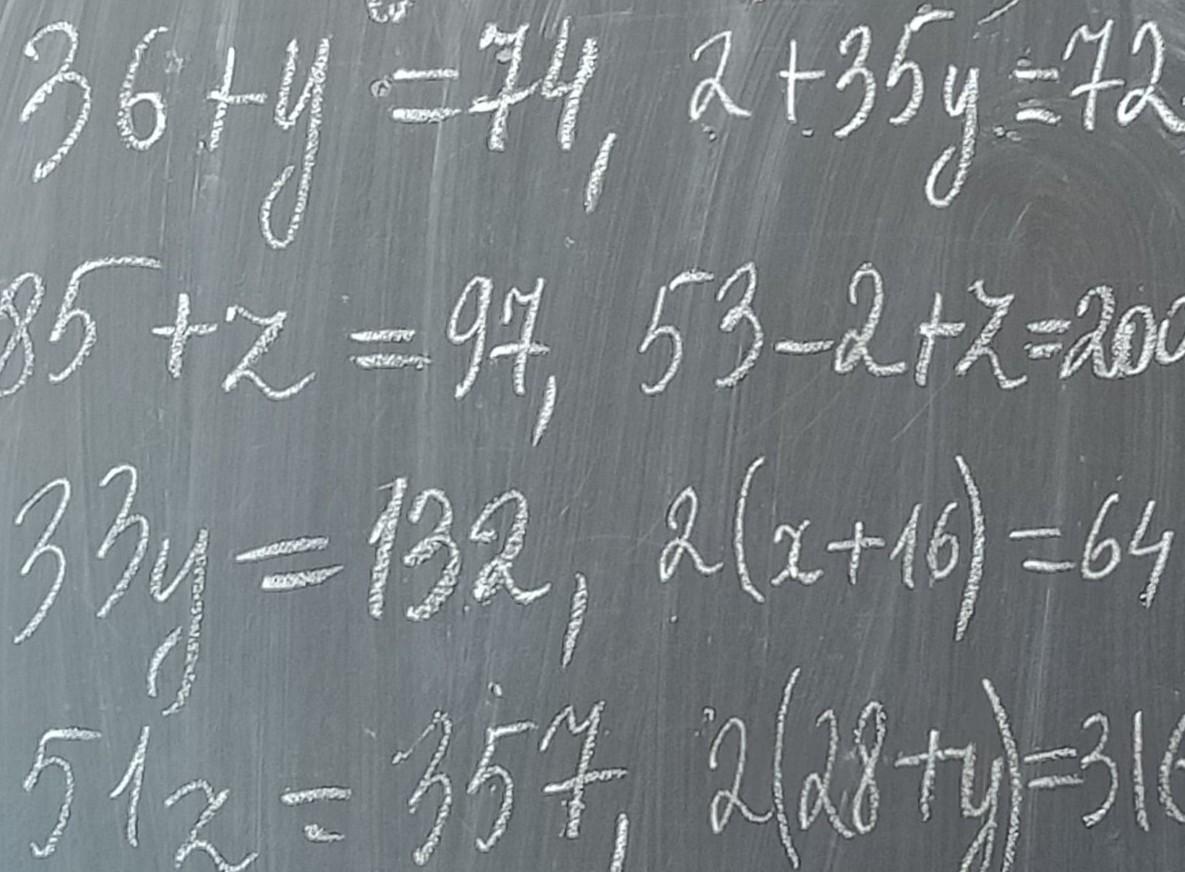 36+y=74, 2+35y=72
85+z=97, 53-2+z=200
33y=132, 2(x+16)=64
51z=357, 2(28+y)=316